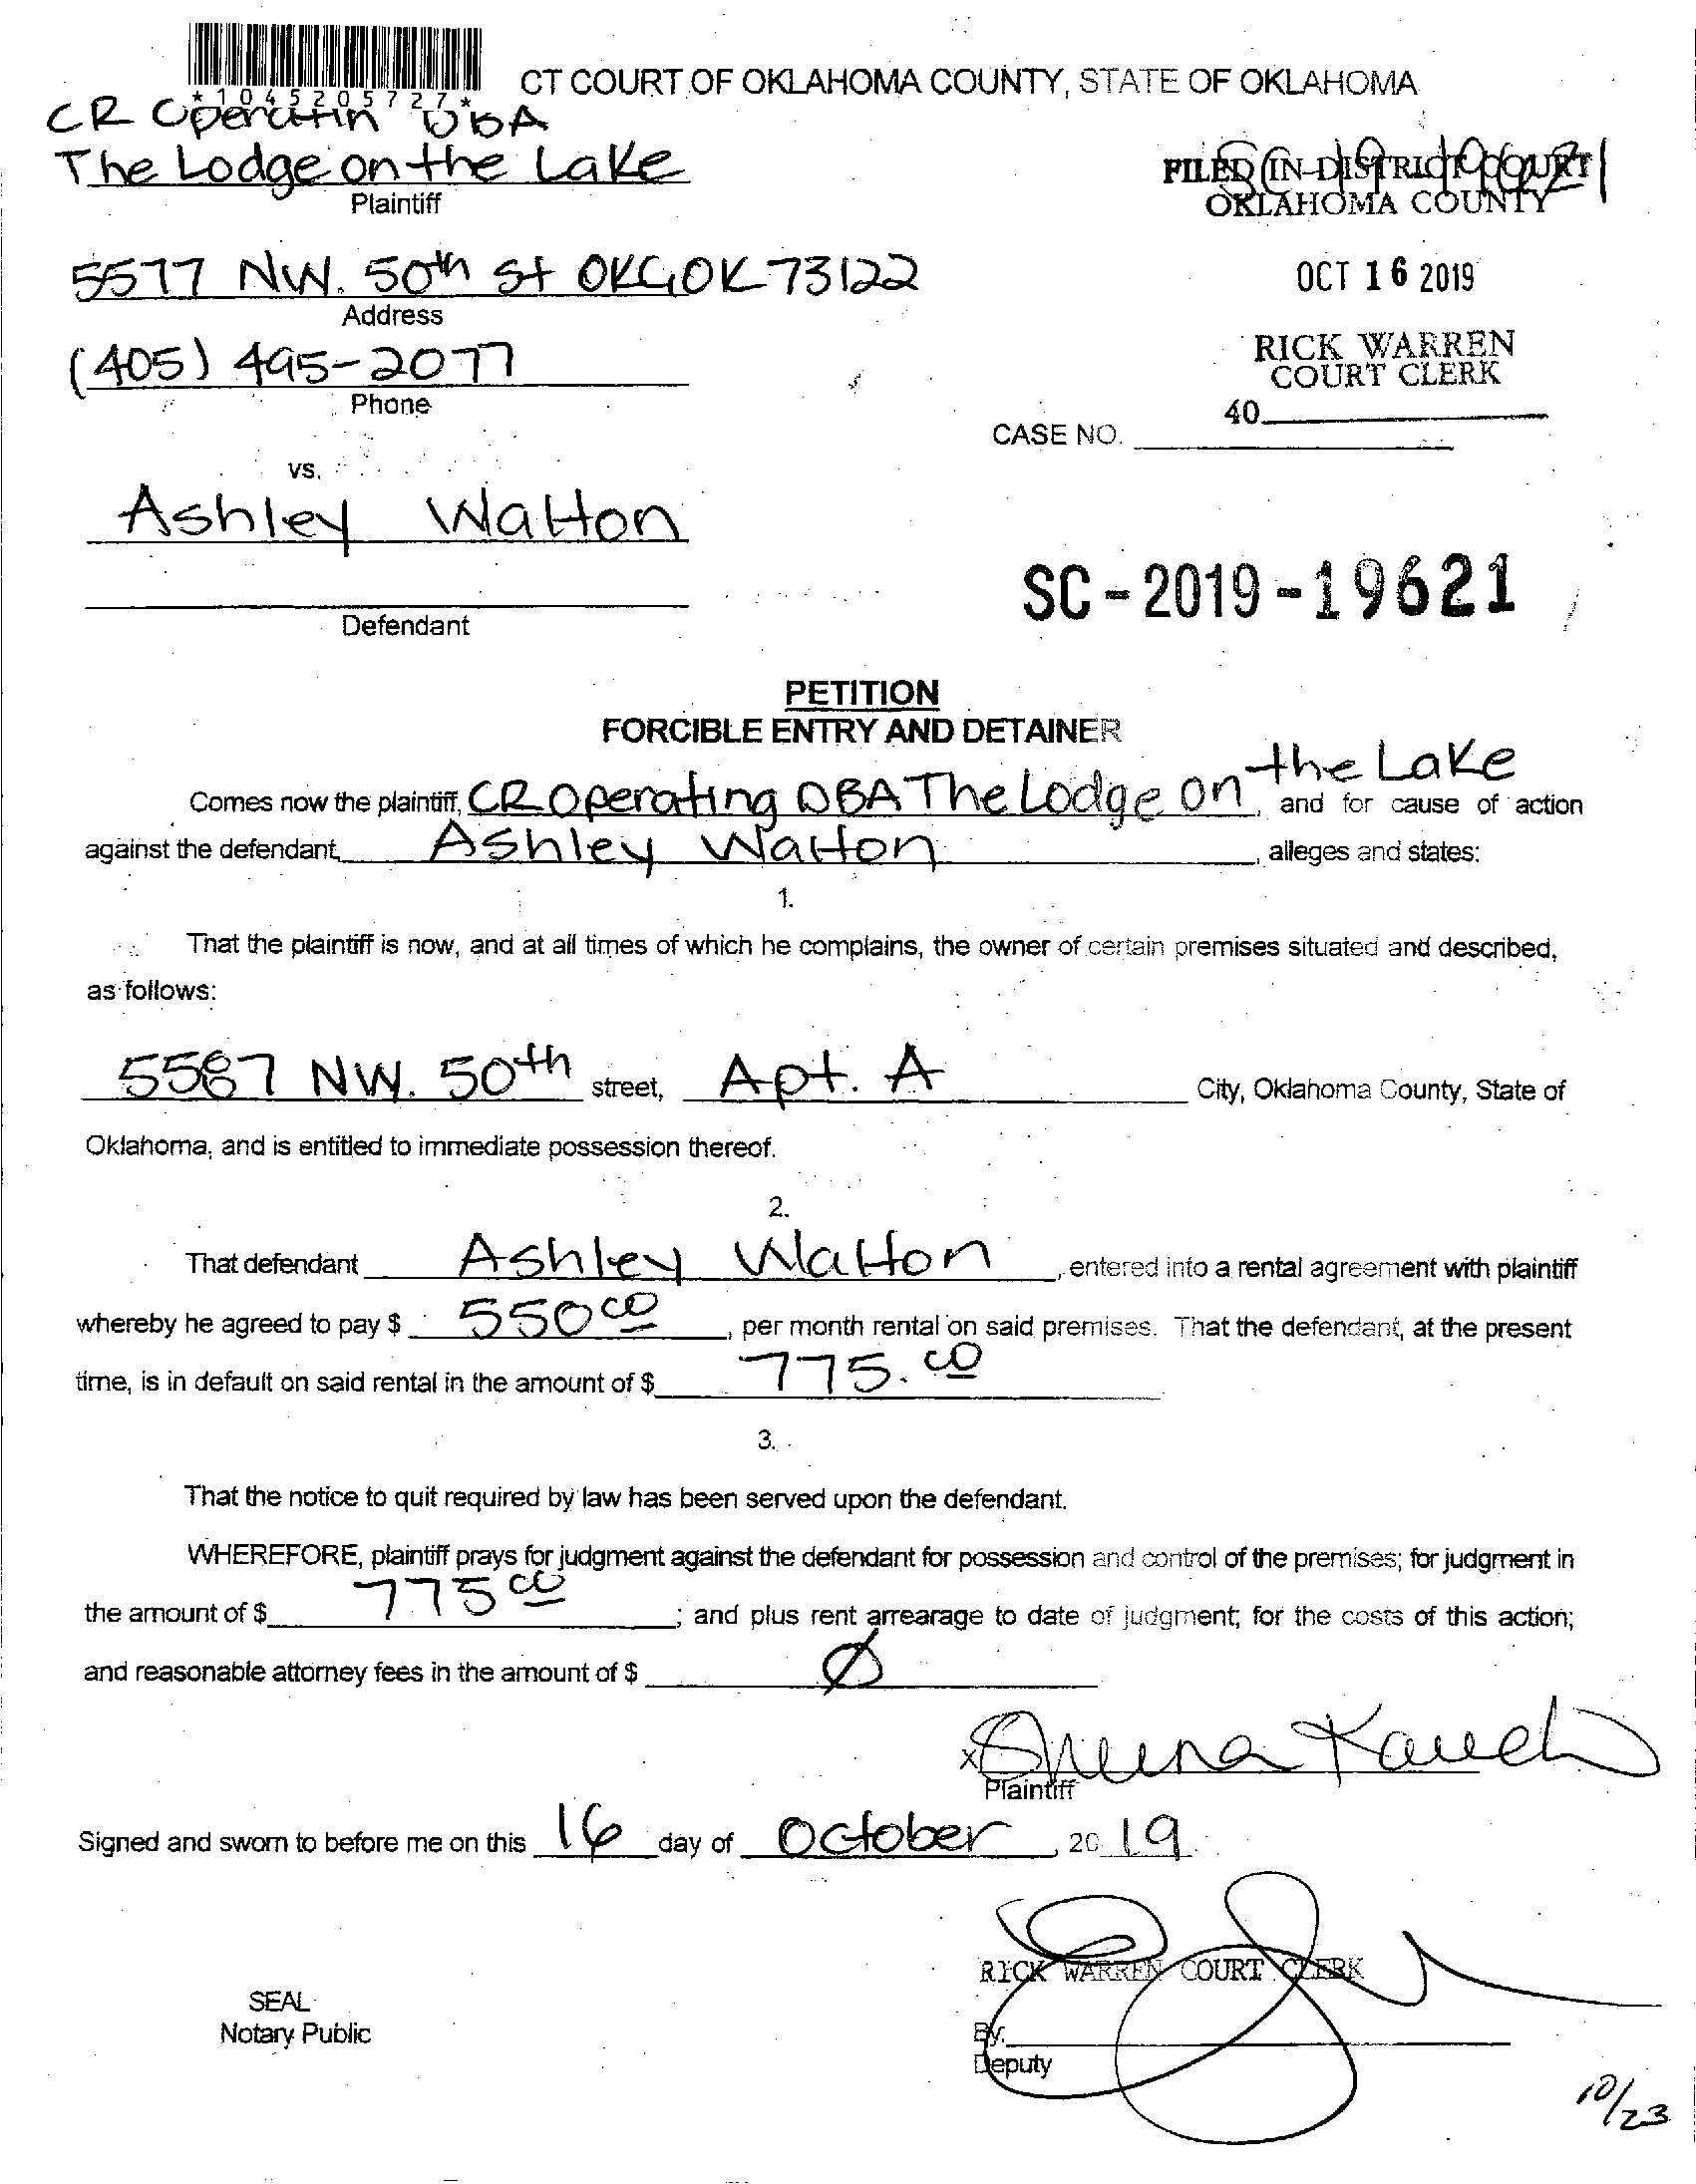 *1045205727*
CT COURT OF OKLAHOMA COUNTY, STATE OF OKLAHOMA
CR Operatin DBA
The Lodge on the Lake
Plaintiff
SC 19 19621
FILED IN DISTRICT COURT
OKLAHOMA COUNTY
5577 NW. 50th St OKC, OK 73122
Address
OCT 16 2019
(405) 495-2077
Phone
RICK WARREN
COURT CLERK
40
CASE NO.
vs.
Ashley Walton
Defendant
SC-2019-19621
PETITION
FORCIBLE ENTRY AND DETAINER
Comes now the plaintiff, CR Operating DBA The Lodge on the Lake, and for cause of action
against the defendant, Ashley Walton, alleges and states:
1.
That the plaintiff is now, and at all times of which he complains, the owner of certain premises situated and described,
as follows:
5587 NW. 50th street, Apt. A City, Oklahoma County, State of
Oklahoma, and is entitled to immediate possession thereof.
2.
That defendant Ashley Walton, entered into a rental agreement with plaintiff
whereby he agreed to pay $ 550 00, per month rental on said premises. That the defendant, at the present
time, is in default on said rental in the amount of $ 775.00
3.
That the notice to quit required by law has been served upon the defendant.
WHEREFORE, plaintiff prays for judgment against the defendant for possession and control of the premises; for judgment in
the amount of $ 775 00; and plus rent arrearage to date of judgment; for the costs of this action;
and reasonable attorney fees in the amount of $ Ø
x
Plaintiff
Signed and sworn to before me on this 16 day of October, 2019
RICK WARREN COURT CLERK
SEAL
Notary Public
By:
Deputy
10/23